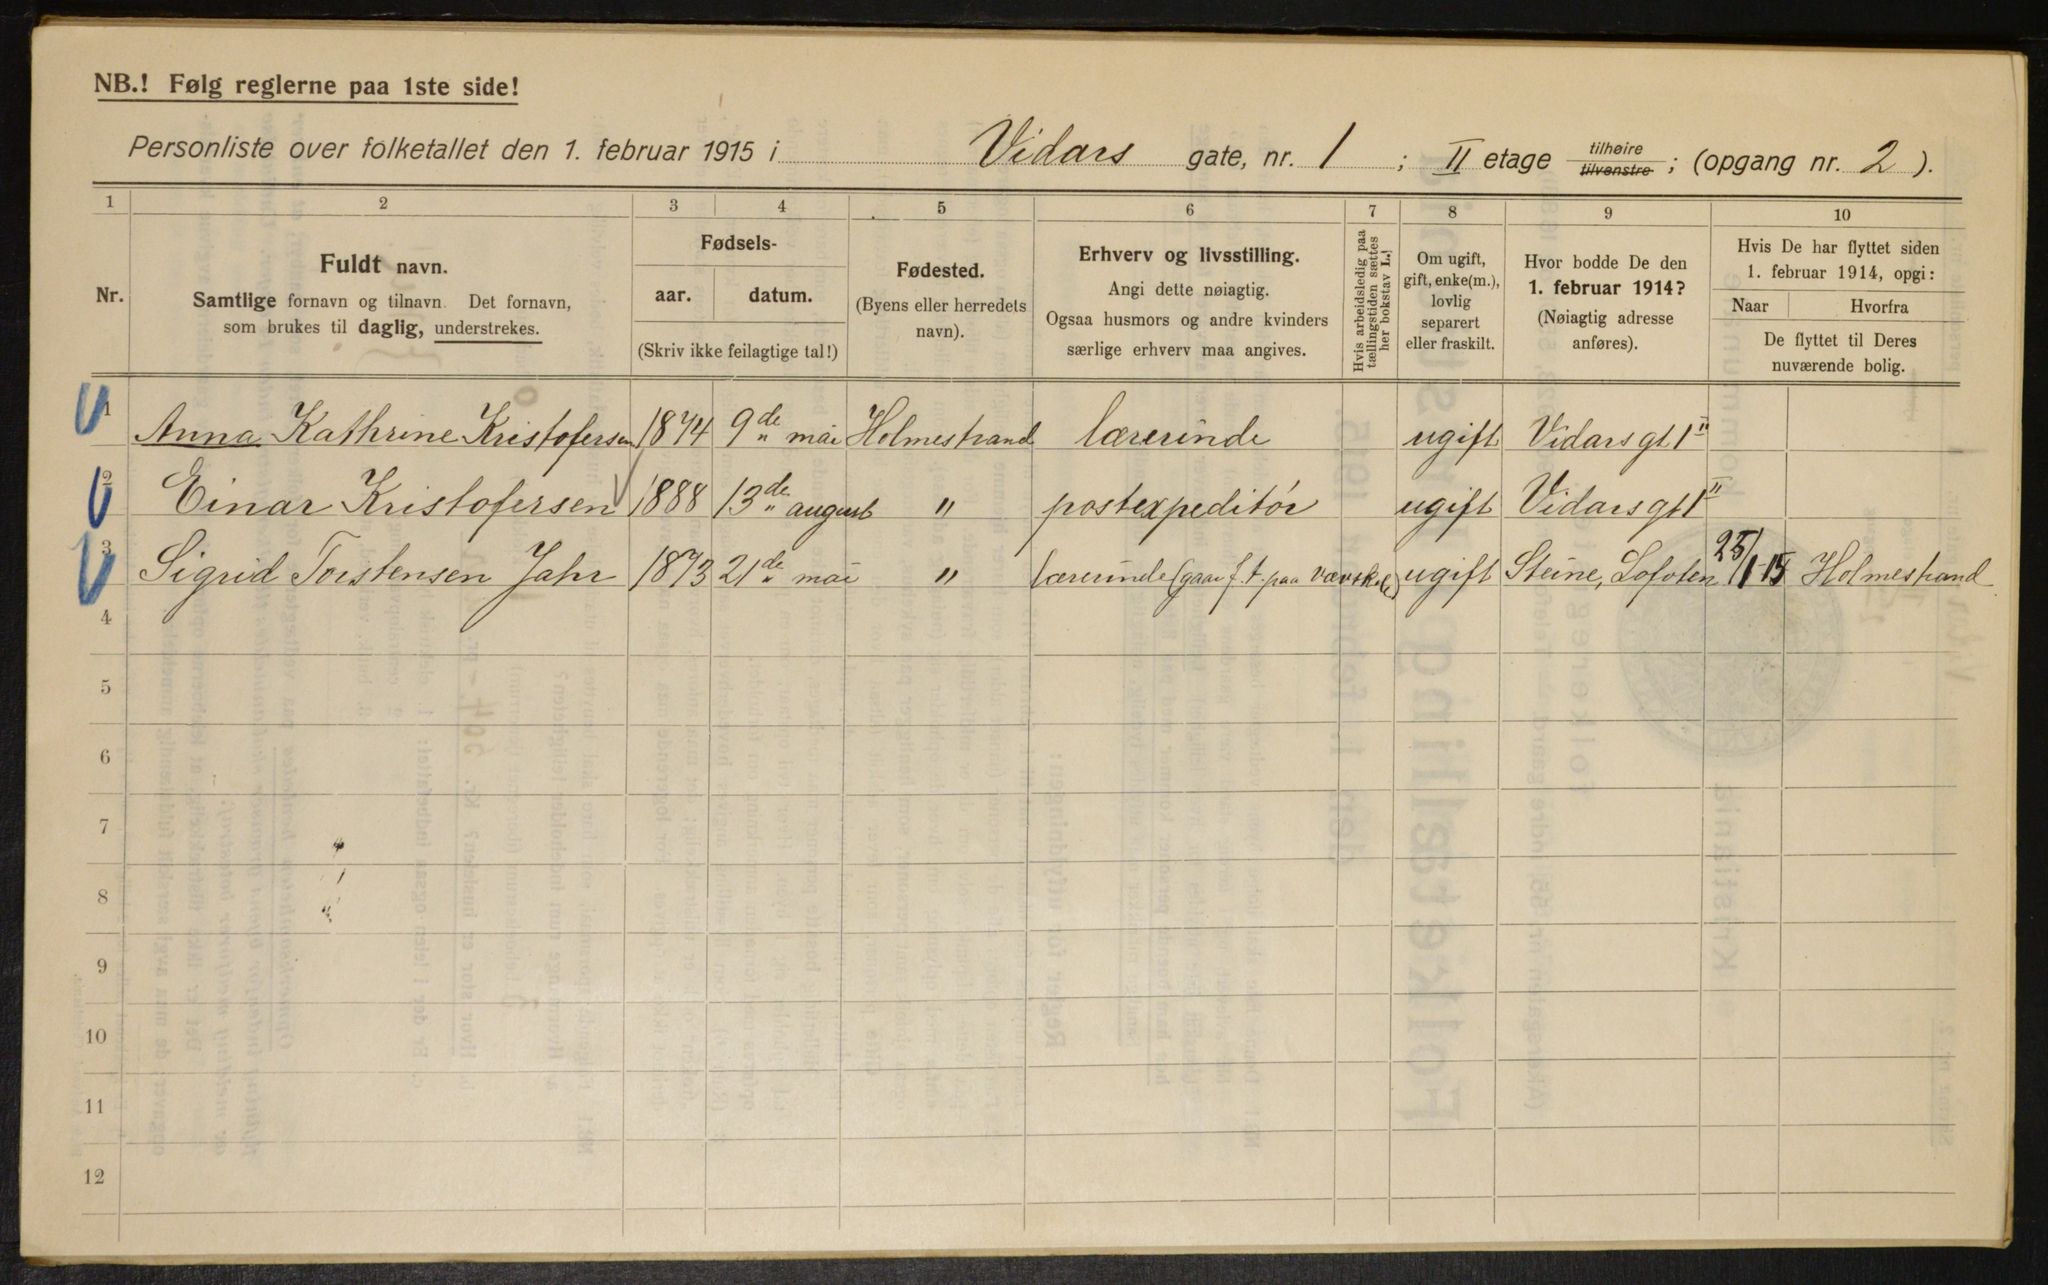 NB.! Følg reglerne paa 1ste side!
Personliste over folketallet den 1. februar 1915 i Vidars gate, nr. 1 ; II etage tilhøire tilvenstre ; (opgang nr. 2 ).
1 2 3 4 5 6 7 8 9 10
Nr.
Fuldt navn.
Samtlige fornavn og tilnavn. Det fornavn,
som brukes til daglig, understrekes.
Fødsels-
aar. datum.
(Skriv ikke feilagtige tal!)
Fødested.
(Byens eller herredets
navn).
Erhverv og livsstilling.
Angi dette nøiagtig.
Ogsaa husmors og andre kvinders
særlige erhverv maa angives.
Hvis arbeidsledig paa
tællingstiden sættes
her bokstav L.!
Om ugift,
gift, enke(m.),
lovlig
separert
eller fraskilt.
Hvor bodde De den
1. februar 1914?
(Nøiagtig adresse
anføres).
Hvis De har flyttet siden
1. februar 1914, opgi:
Naar Hvorfra
De flyttet til Deres
nuværende bolig.
1 Anna Kathrine Kristofersen 1874 9de mai Holmestrand lærerinde ugift Vidarsgt 1 II
2 Einar Kristofersen 1888 13de august " postexpeditór ugift Vidarsgt 1 II
3 Sigrid Torstensen Jahr 1873 21de mai " lærerinde (gaar f.t. paa vævskole) ugift Steine, Lofoten 25/1 15 Holmestrand
4
5
6
7
8
9
10
11
12